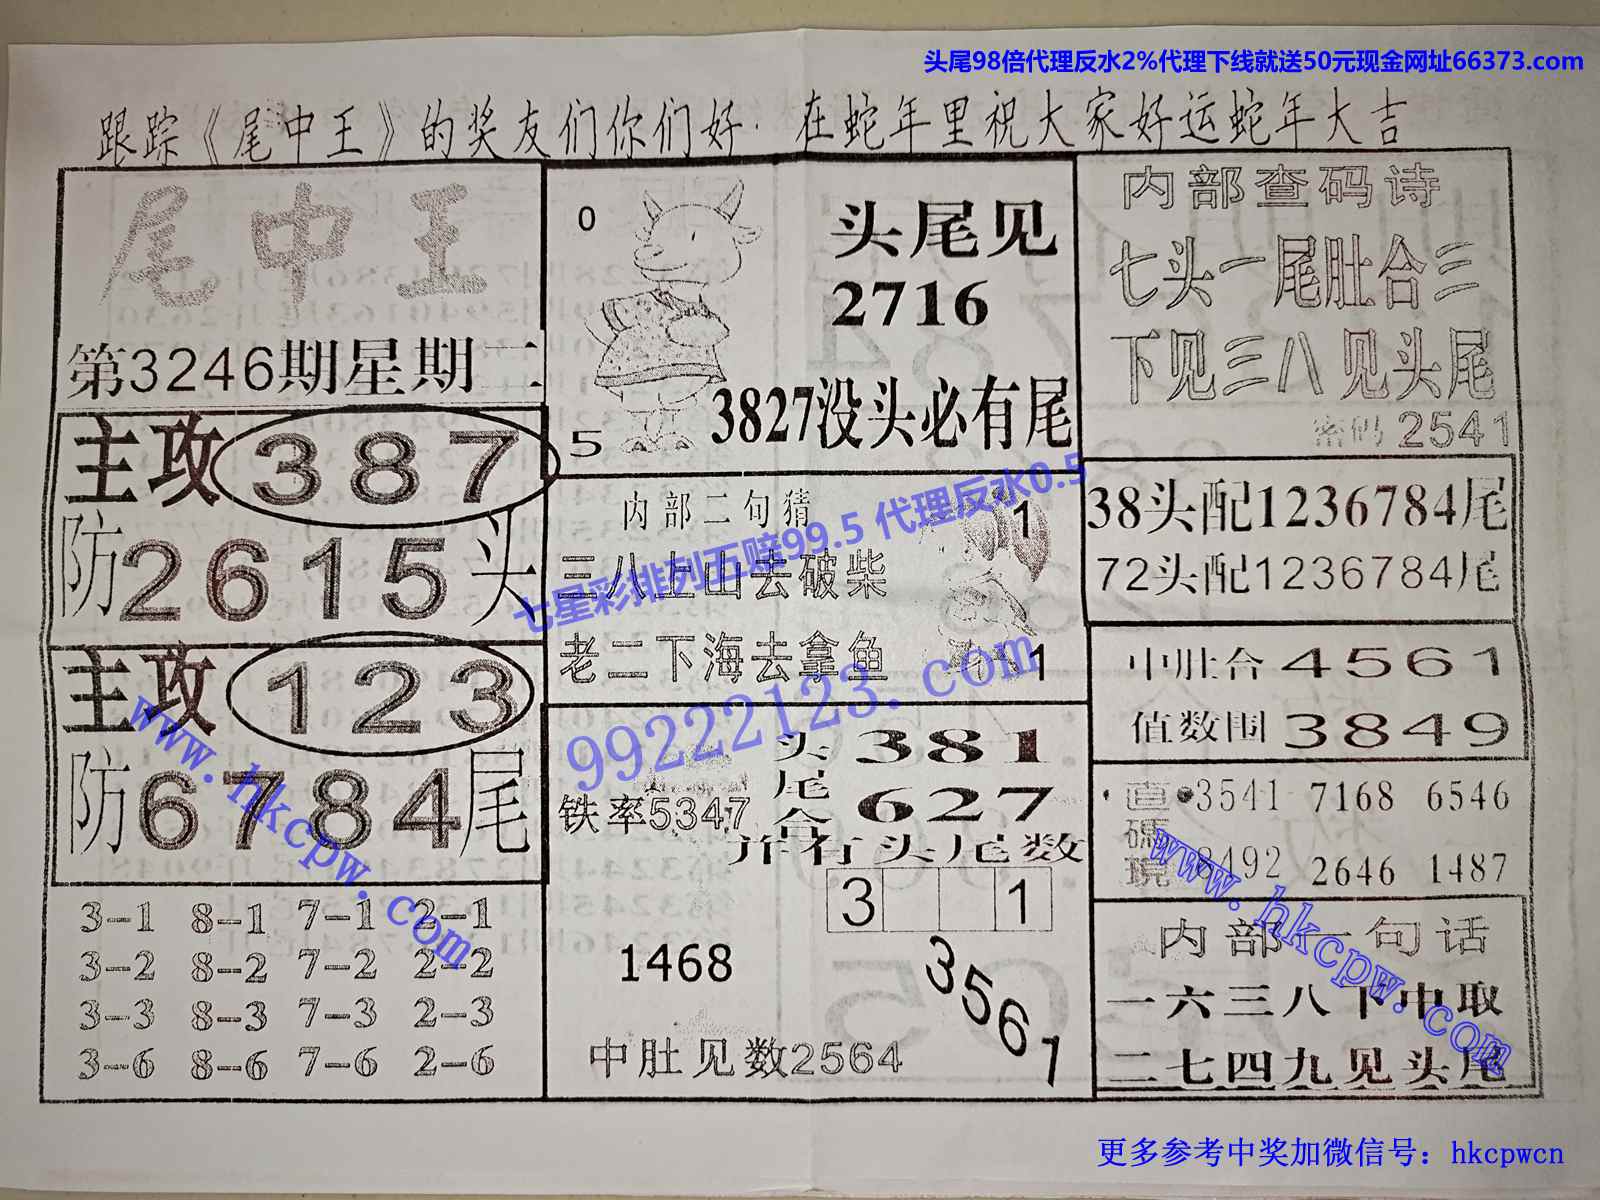 头尾98倍代理反水2%代理下线就送50元现金网址66373.com
跟踪《尾中王》的奖友们你们好· 在蛇年里祝大家好运蛇年大吉
尾中王
第3246期星期二
主攻 387
防2615头
主攻 123
防6784尾
3-1 8-1 7-1 2-1
3-2 8-2 7-2 2-2
3-3 8-3 7-3 2-3
3-6 8-6 7-6 2-6
0
头尾见
2716
3827没头必有尾
5
内部二句猜
三八上山去破柴
老二下海去拿鱼
1
1
头尾合
381
627
铁率5347
并有头尾数
3 1
1468
3561
中肚见数2564
内部查码诗
七头一尾肚合三
下见三八见头尾
密码 2541
38头配1236784尾
72头配1236784尾
中肚合4561
值数围3849
直碼
3541 7168 6546
8492 2646 1487
内部一句话
一六三八下中取
二七四九见头尾
七星彩排列五赔99.5 代理反水0.5
99222123.com
www.hkcpw.com
www.hkcpw.com
更多参考中奖加微信号：hkcpwcn